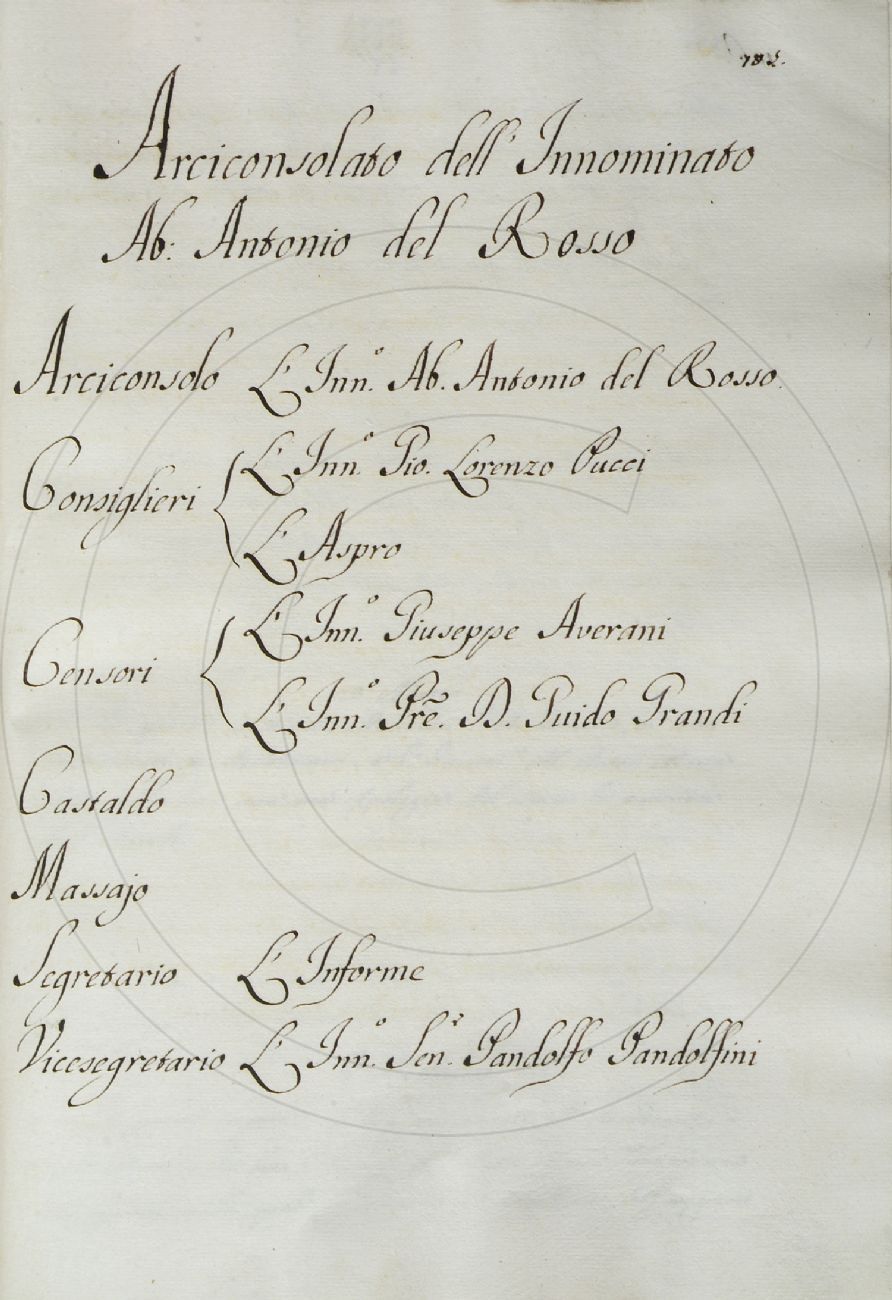 Arciconsolato dell' Innominato
Ab: Antonio del Rosso
Arciconsolo L' Inn.º Ab. Antonio del Rosso.
Consiglieri { L' Inn.º Gio. Lorenzo Pucci
L' Aspro
Censori { L' Inn.º Giuseppe Averani
L' Inn.º Prẽ. D. Guido Grandi
Castaldo
Massajo
Segretario L' Informe
Vicesegretario L' Inn.º Sen.ʳ Pandolfo Pandolfini